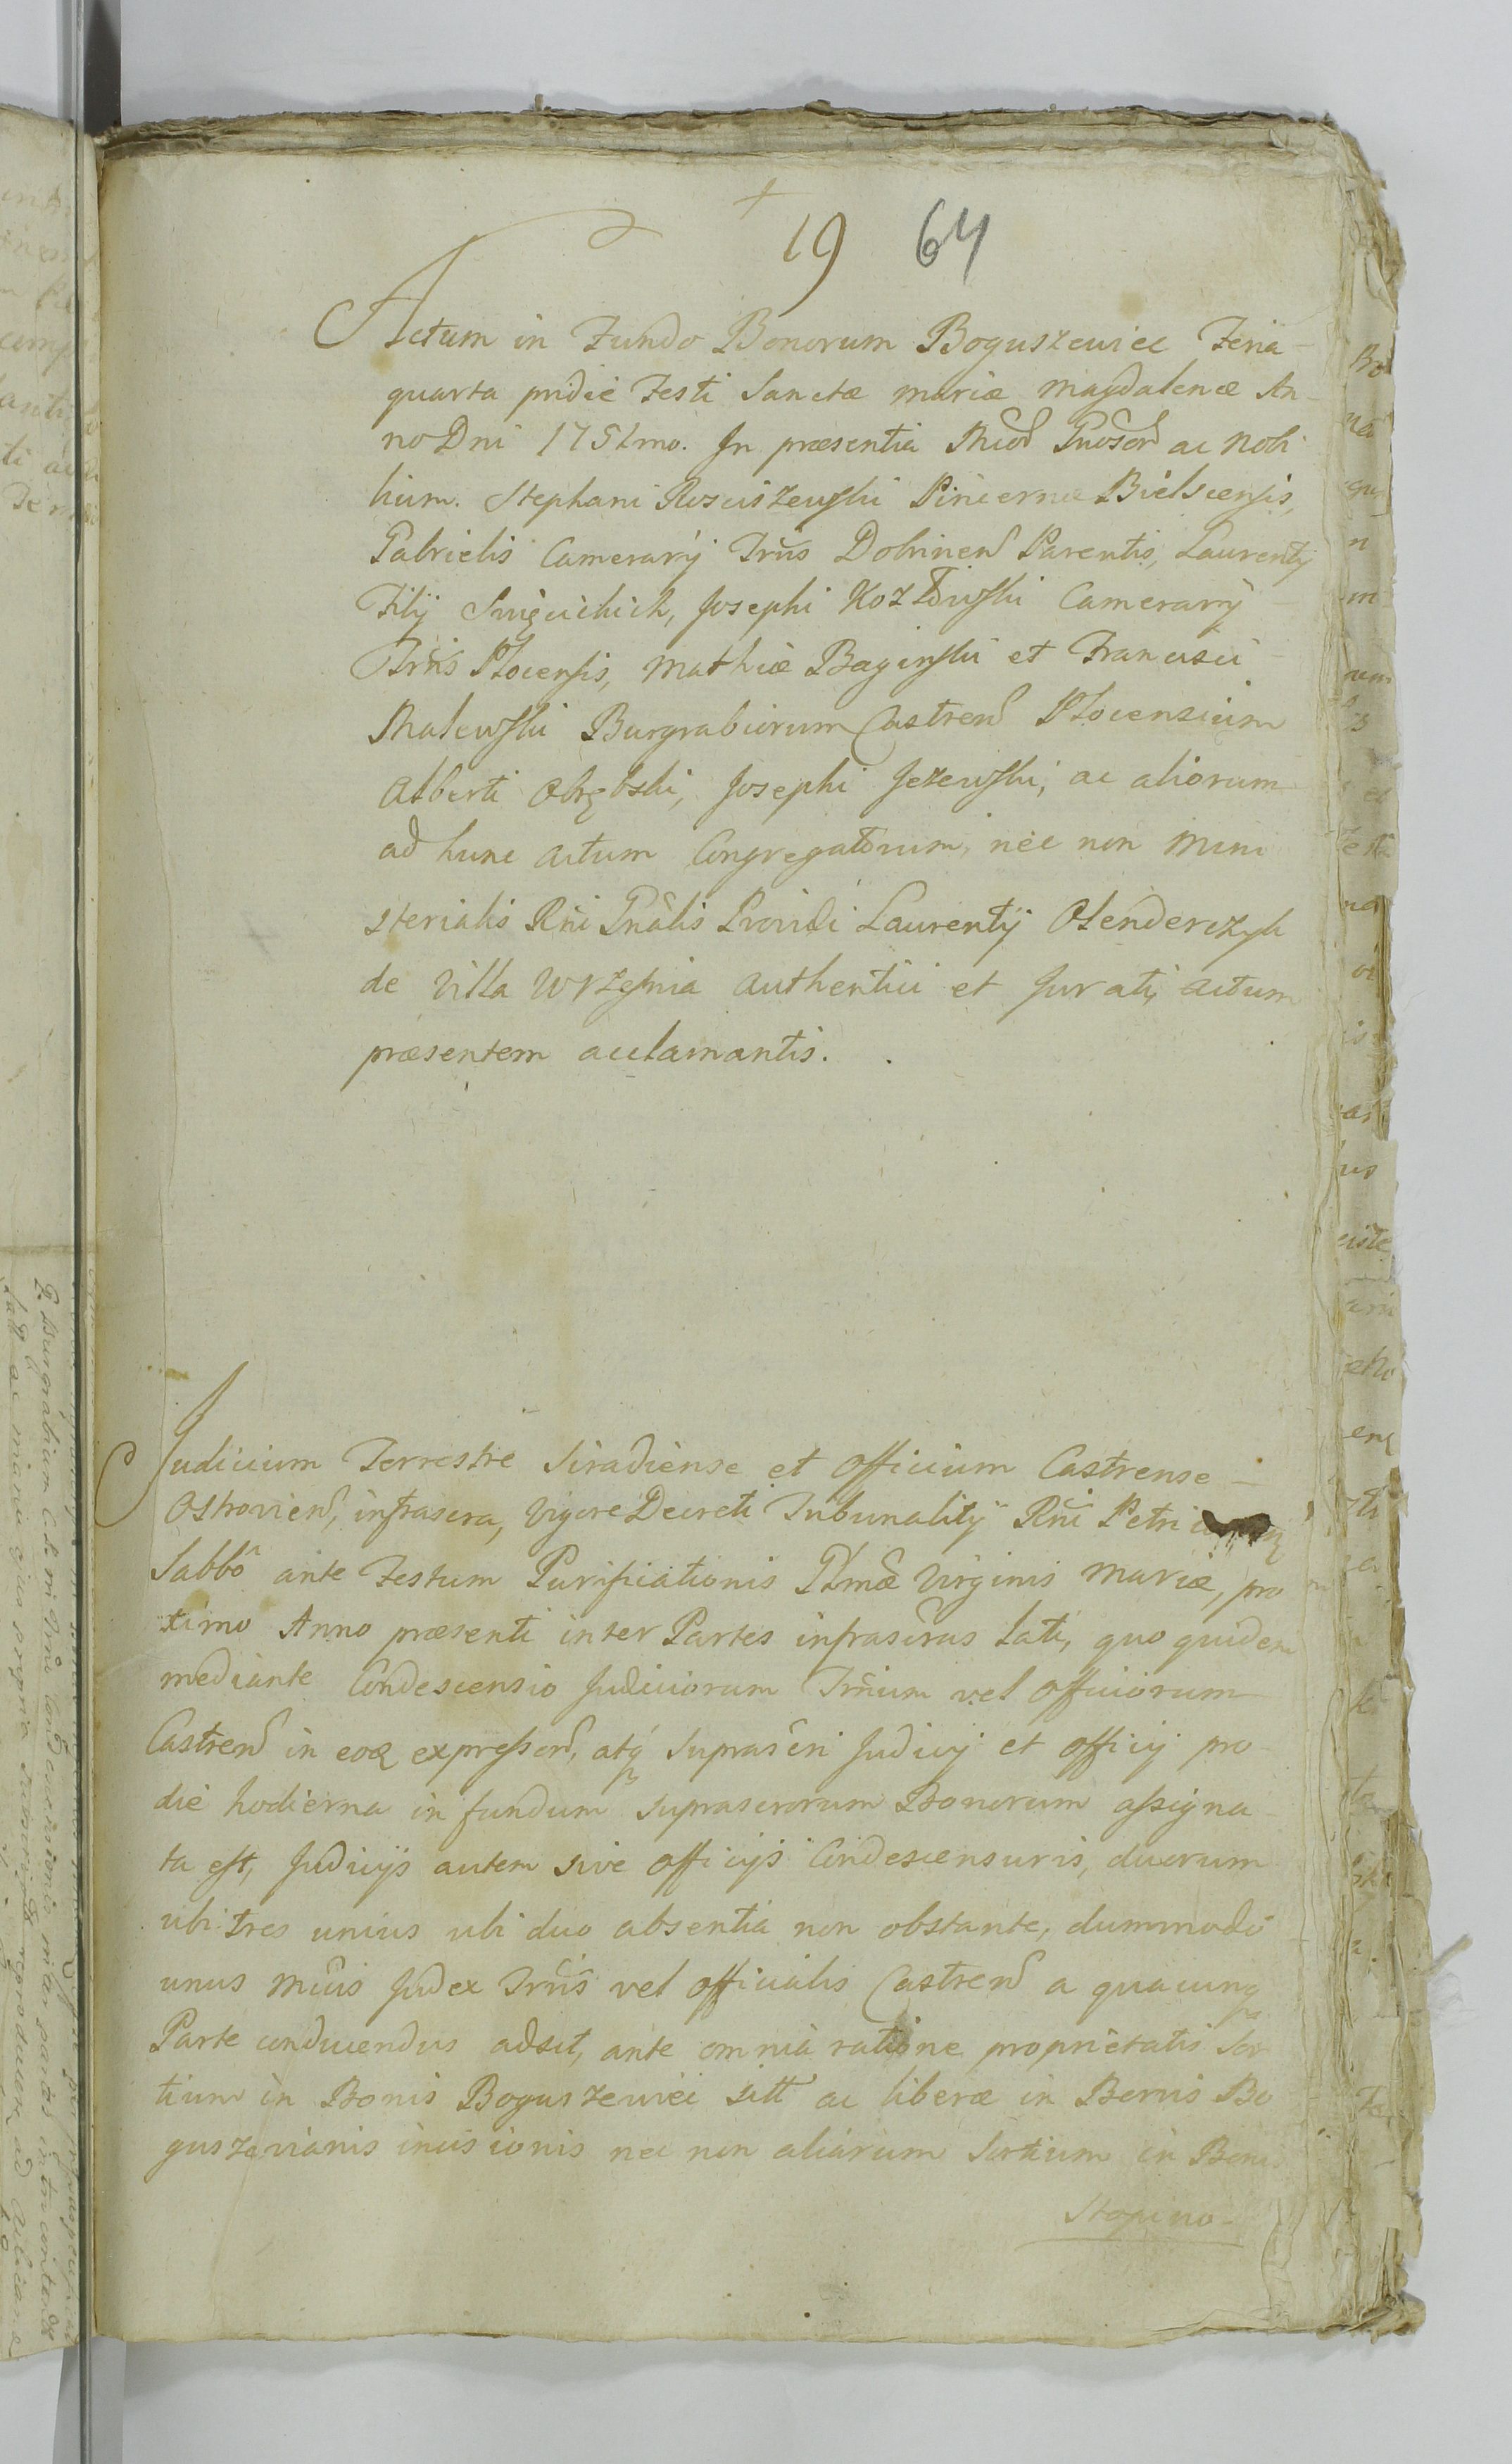 19 64
Actum in Fundo Bonorum Boguszewiec Feria
quarta pridie Festi Sanctæ mariæ magdalenæ An-
no Dni 1751mo. In præsentia Gnosor ac nobi
lium. Stephani Rosciszewski Pincernæ Bielscensis,
Gabrielis Camerarij Trris Dobrinen Parentis, Laurentij
Filij Josephi Kozłowski Camerarij
Trris Plocensis, Mathiæ Baginski et Francisci
Malewski Burgrabiorum Castren Plocensium
Alberti Obrębski, Josephi Jezewski, ac aliorum
ad hunc actum Congregatorum, nec non Mini
sterialis Rni Gnalis Providi Laurentij Olenderczyk
de Villa Wrzesnia authentici et Jurati, actum
præsentem acclamantis.
Judicium Terrestre Siradiense et Officium Castrense
Ostrovien, infrascra, vigore Decreti Tribunalitij Rni Petri
Sabbo ante Festum Purificationis Bmæ Virginis Mariæ, pro
ximo Anno præsenti inter Partes infrascras lati, quo quidem
mediante Condescensio Judiciorum Trrium vel Officiorum
Castren in eoq expressor, atq suprascri Judicij et Officij pro
die hodierna in fundum suprascrorum Bonorum assigna
ta est, Judicijs autem sive Officijs Condescensuris, duorum
ubi tres unius ubi duo absentia non obstante, dummodo
unus Judex Trris vel Officialis Castren a quacunq
Parte conducendus adsit, ante omnia ratione proprietatis Sor
tium in Bonis Boguszewiec sitt ac liberæ in Bonis Bo
guszevianis incisionis nec non aliarum Sortium in Bonis
Stopino